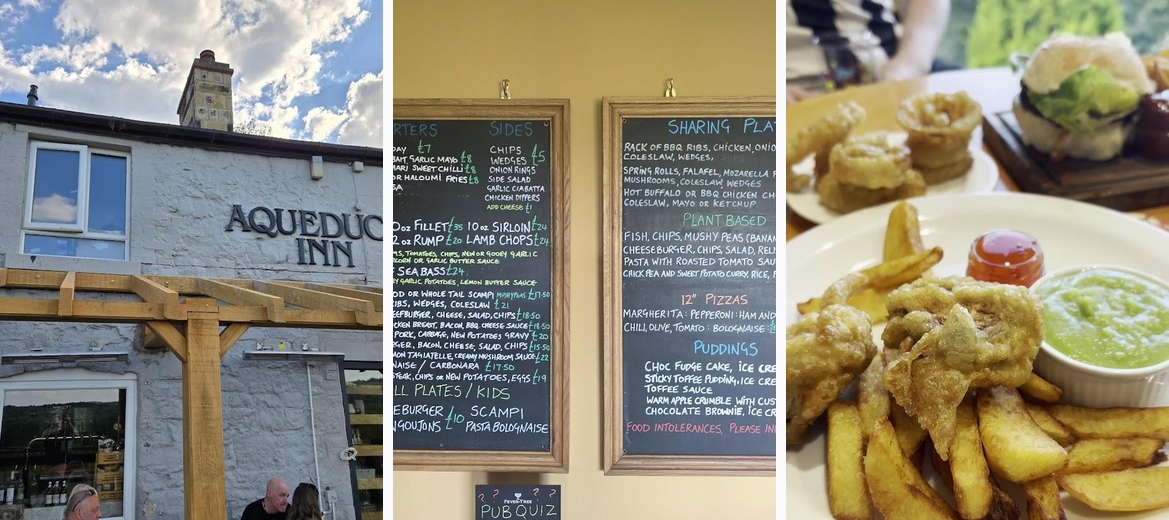 AQUEDUC
INN
RTERS
SIDES
DAY £7
BAIT, GARLIC MAYO £8
MARI SWEET CHILLI £8
OR HALOUMI FRIES £8
SA
CHIPS £5
WEDGES
ONION RINGS
SIDE SALAD
GARLIC CIABATTA
CHICKEN DIPPERS
ADD CHEESE £1
0oz FILLET £35 10oz SIRLOIN £24
2oz RUMP £20 LAMB CHOPS £24
MS, TOMATOES, CHIPS, NEW OR GOOEY GARLIC
CORN OR GARLIC BUTTER SAUCE
SEA BASS £24
GARLIC POTATOES, LEMON BUTTER SAUCE
OD OR WHOLE TAIL SCAMPI MUSHY PEAS £17.50
IBS, WEDGES, COLESLAW £21
EEFBURGER, CHEESE, SALAD, CHIPS £18.50
CKEN BREAST, BACON, BBQ CHEESE SAUCE £18.50
PORK, CABBAGE, NEW POTATOES GRAVY £20
RGER, BACON, CHEESE, SALAD, CHIPS £15.50
MON TAGLIATELLE, CREAMY MUSHROOM SAUCE £22
NAISE / CARBONARA £17.50
STEAK, CHIPS OR NEW POTATOES, EGGS £19
LL PLATES / KIDS
EBURGER £10 SCAMPI
NGOUJONS PASTA BOLOGNAISE
SHARING PLAT
RACK OF BBQ RIBS, CHICKEN, ONIO
COLESLAW, WEDGES,
SPRING ROLLS, FALAFEL, MOZARELLA F
MUSHROOMS, COLESLAW, WEDGES
HOT BUFFALO OR BBQ CHICKEN
COLESLAW, MAYO OR KETCHUP
PLANT BASED
FISH, CHIPS, MUSHY PEAS (BANAN
CHEESEBURGER, CHIPS, SALAD, REL
PASTA WITH ROASTED TOMATO SAU
CHICK PEA AND SWEET POTATO CURRY, RICE, F
12" PIZZAS
MARGHERITA: PEPPERONI: HAM AND
CHILLI, OLIVE, TOMATO: BOLOGNAISE
PUDDINGS
CHOC FUDGE CAKE, ICE CRE
STICKY TOFFEE PUDDING, ICE CRE
TOFFEE SAUCE
WARM APPLE CRUMBLE WITH CUS
CHOCOLATE BROWNIE, ICE CR
FOOD INTOLERANCES, PLEASE IN
? ? ? ?
FEVER-TREE
PUB QUIZ